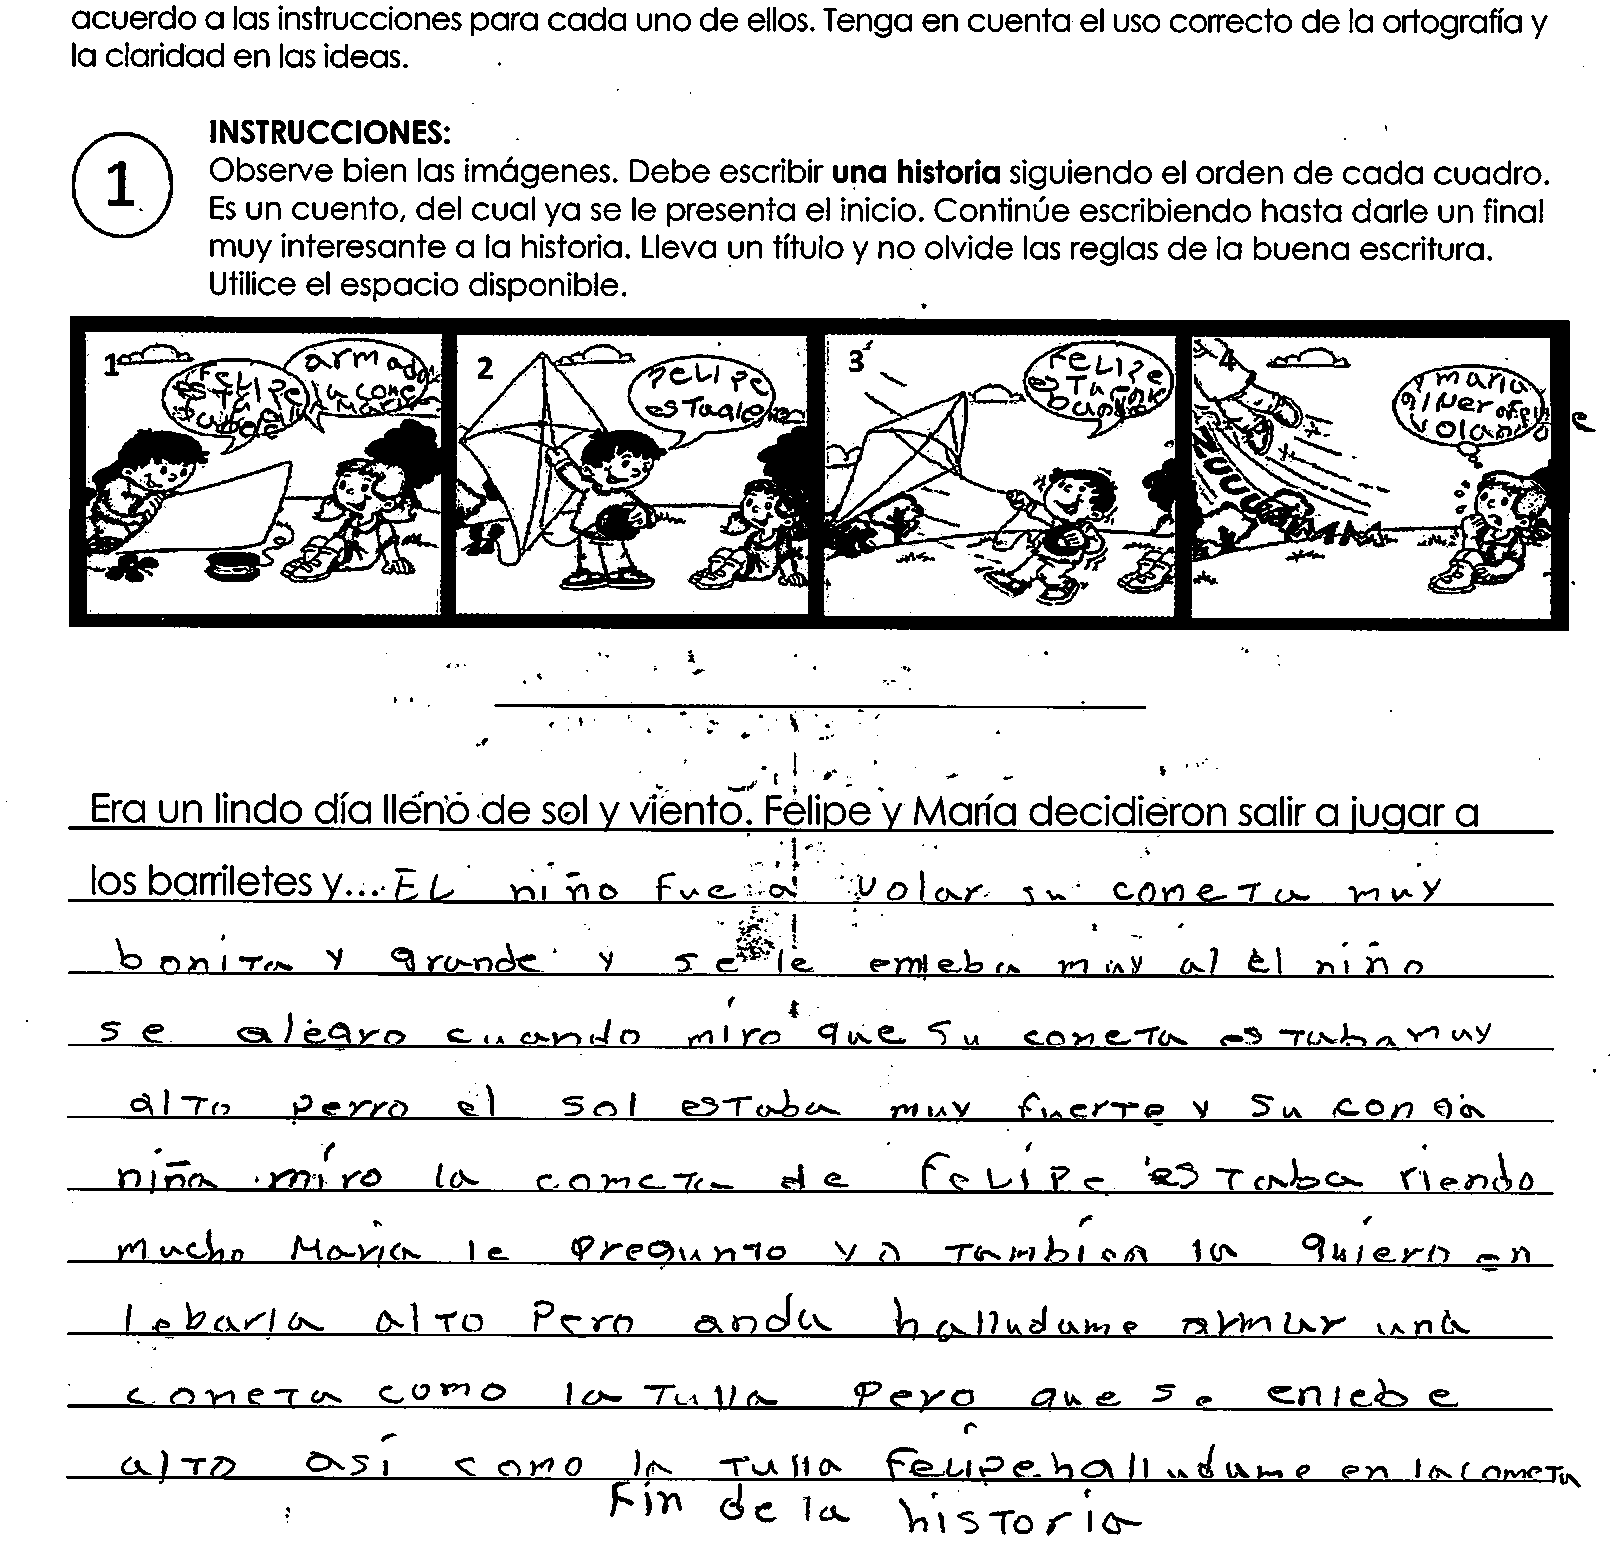 acuerdo a las instrucciones para cada uno de ellos. Tenga en cuenta el uso correcto de la ortografía y
la claridad en las ideas.
1
INSTRUCCIONES:
Observe bien las imágenes. Debe escribir una historia siguiendo el orden de cada cuadro.
Es un cuento, del cual ya se le presenta el inicio. Continúe escribiendo hasta darle un final
muy interesante a la historia. Lleva un título y no olvide las reglas de la buena escritura.
Utilice el espacio disponible.
1
FELIPE
2
FELIPE
3
FELIPE
4
y maria
volando
Era un lindo día lleno de sol y viento. Felipe y María decidieron salir a jugar a
los barriletes y... EL niño fue a volar su coneta muy
bonita y grande y se le enleba muy al el niño
se alegro cuando miro que su coneta estaba muy
alto perro el sol estaba muy fuerte y su
niña miro la cometa de feLipe estaba riendo
mucho Maria le pregunto yo tambien la quiero en
lebarla alto pero anda halludame armar una
coneta como la tulla pero que se enlebe
alto así como la tulla felipe halludame en la cometa
Fin de la historia